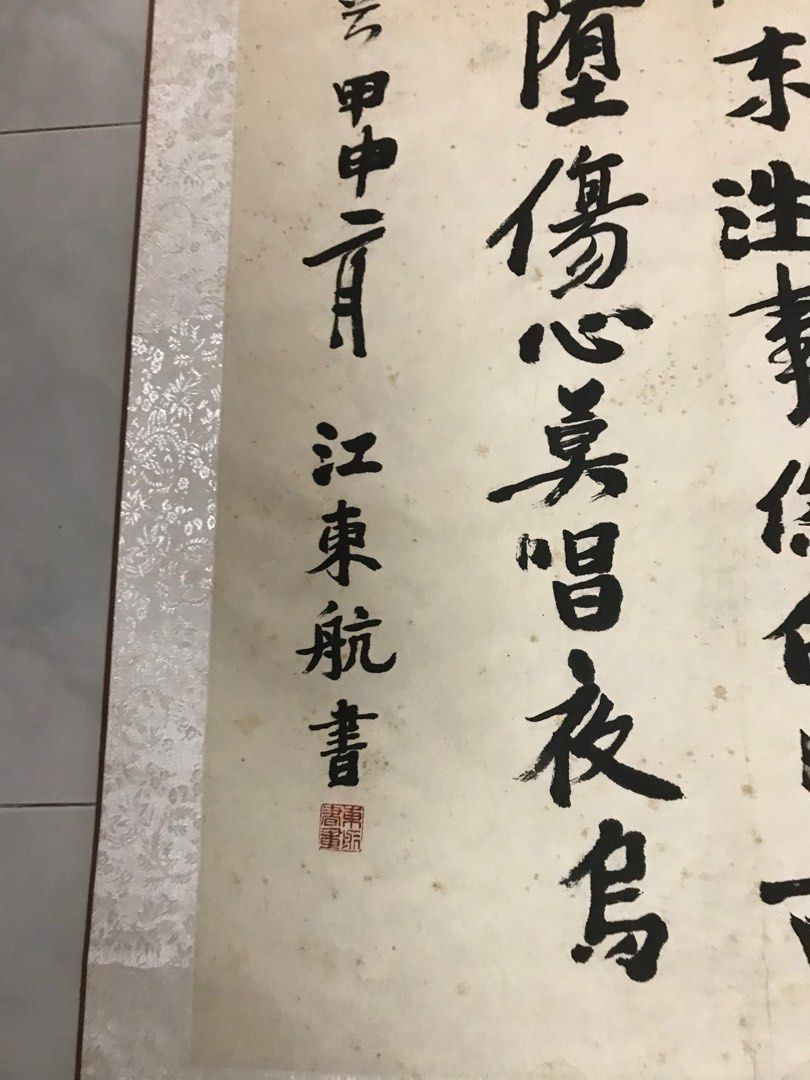 往事
墮傷心莫唱夜烏
甲申二月 江東航書
東航書畫